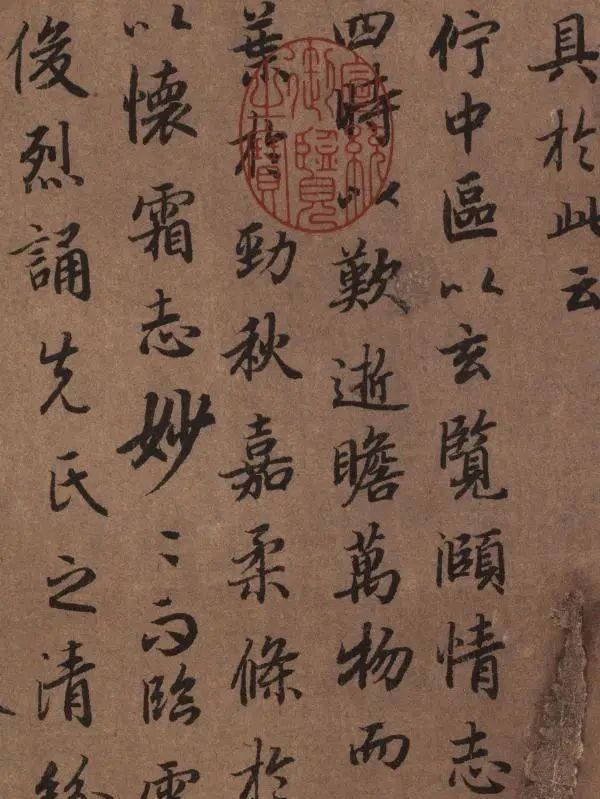 具於此云
佇中區以玄覽頤情志
四時以歎逝瞻萬物而
葉於勁秋嘉柔條於
以懷霜志妙〻而臨雲
俊烈誦先氏之清
宣統
御覽
之寶